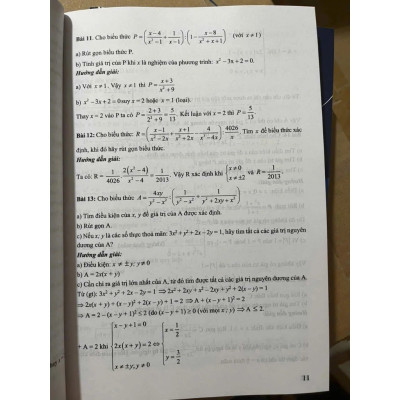 Bài 11. Cho biểu thức P = (x−4/x³−1 + 1/x−1) : (1 − x−8/x²+x+1) (với x ≠ 1)
a) Rút gọn biểu thức P.
b) Tính giá trị của P khi x là nghiệm của phương trình: x² − 3x + 2 = 0.
Hướng dẫn giải:
a) Với x ≠ 1. Vậy x ≠ 1 thì P = x+3/x²+9
b) x² − 3x + 2 = 0 suy x = 2 hoặc x = 1 (loại).
Thay x = 2 vào P ta có P = 2+3/2²+9 = 5/13. Kết luận với x = 2 thì P = 5/13.
Bài 12: Cho biểu thức: R = (x−1/x²−2x + x+1/x²+2x − 4/x³−4x) · 4026/x. Tìm x để biểu thức xác
định, khi đó hãy rút gọn biểu thức.
Hướng dẫn giải:
Ta có: R = 1/4026 · 2(x²−4)/x²−4 = 1/2013. Vậy R xác định khi { x ≠ 0 x ≠ ±2 và R = 1/2013.
Bài 13: Cho biểu thức A = 4xy/y²−x² : (1/y²−x² + 1/y²+2xy+x²)
a) Tìm điều kiện của x, y để giá trị của A được xác định.
b) Rút gọn A.
c) Nếu x; y là các số thực thoả mãn: 3x² + y² + 2x − 2y = 1, hãy tìm tất cả các giá trị nguyên
dương của A?
Hướng dẫn giải:
a) Điều kiện: x ≠ ± y; y ≠ 0
b) A = 2x(x + y)
c) Cần chỉ ra giá trị lớn nhất của A, từ đó tìm được tất cả các giá trị nguyên dương của A.
Từ (gt): 3x² + y² + 2x − 2y = 1 ⇒ 2x² + 2xy + x² − 2xy + y² + 2(x − y) = 1
⇒ 2x(x + y) + (x − y)² + 2(x − y) + 1 = 2 ⇒ A + (x − y + 1)² = 2
⇒ A = 2 − (x − y + 1)² ≤ 2 (do (x − y + 1) ≥ 0 (với mọi x ; y) ⇒ A ≤ 2.
+ A = 2 khi { x − y + 1 = 0 2x(x + y) = 2 x ≠ ±y; y ≠ 0 ⇔ { x = 1/2 y = 3/2
11